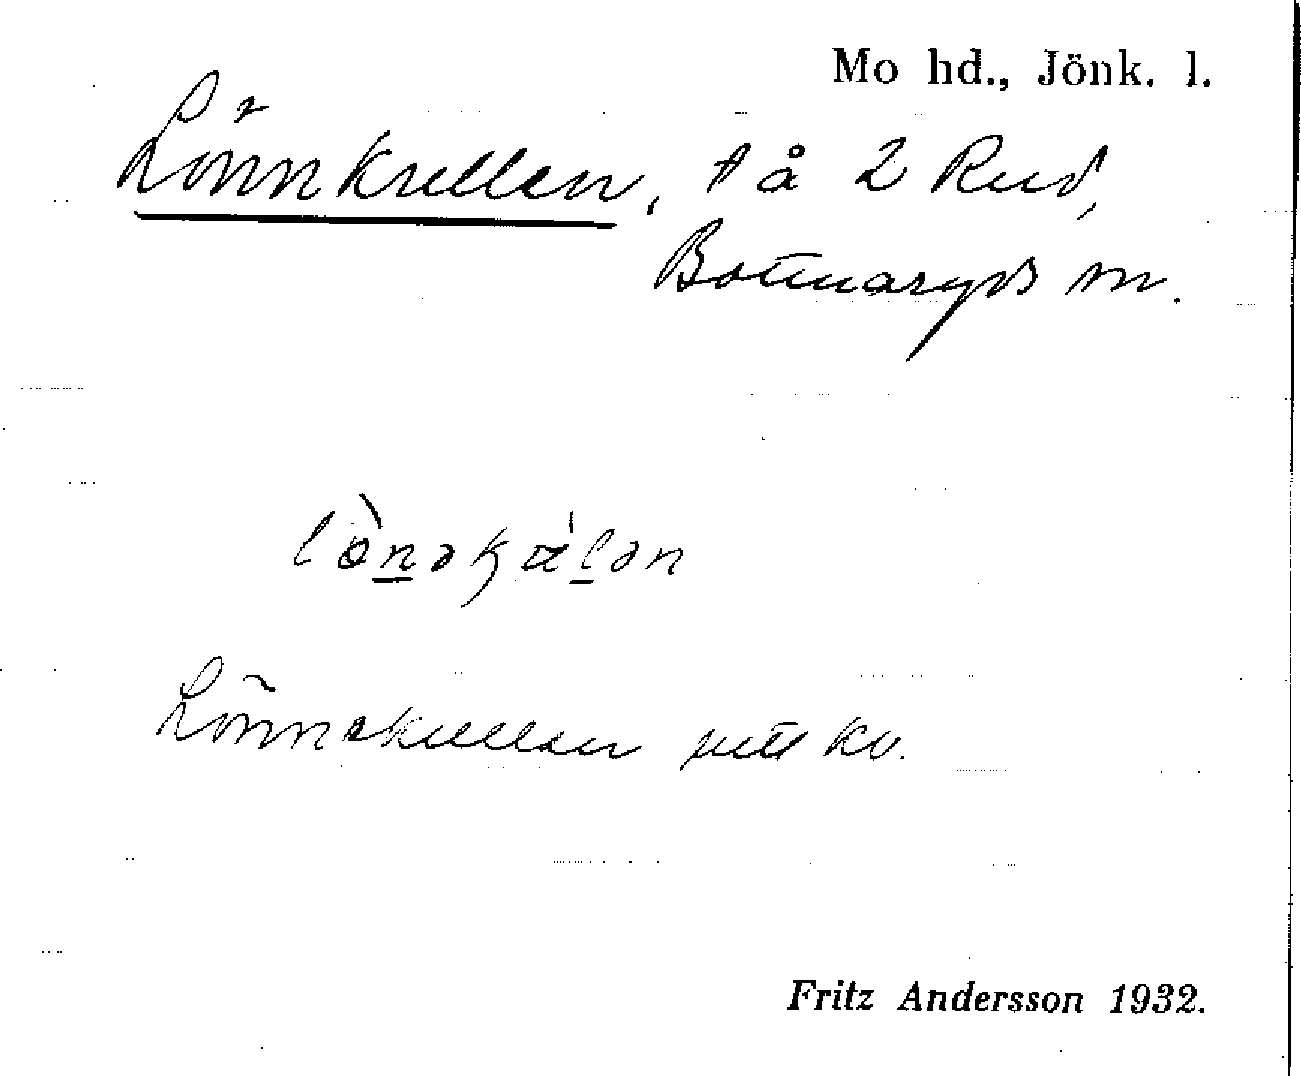 Mo hd., Jönk. l.
Lönnkullen, t å 2 Rud,
Bottnaryds sn.
Lönnekullen utt kv.
Fritz Andersson 1932.